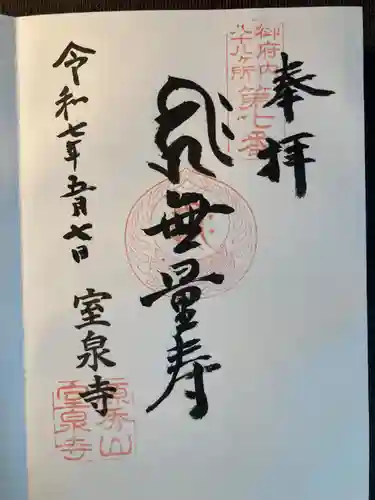 奉拝
御府内
八十八ヶ所
第七番
無量寿
令和七年五月七日
室泉寺
室泉寺